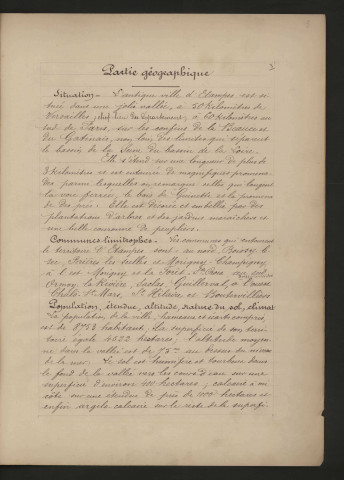 3
Partie géographique
Situation - L'antique ville d'Etampes est si-
tuée dans une jolie vallée, à 50 kilomètres de
Versailles, chef-lieu du département, à 50 kilomètres au
sud de Paris, sur les confins de la Beauce et
du Gatinais, non loin des limites qui séparent
le bassin de la Seine du bassin de la Loire.
Elle s'étend sur une longueur de plus de
kilomètres et est entourée de magnifiques promena-
des parmi lesquelles on remarque celle qui longe
la voie ferrée, le bois de Guinette et la promena
de des prés. Elle est décorée et embellie par des
plantations d'arbres et des jardins maraîchers et
une belle couronne de peupliers.
Communes limitrophes - Les communes qui entourent
le territoire d'Etampes sont: au nord Boissy-le-
sec, Brières les Scellés et Morigny-Champigny,
à l'est Morigny et la Forêt-Ste-Croix, au sud
Ormoy la Rivière, Saclas, Guillerval, à l'ouest
Chalo-St-Mars, St-Hilaire et Boutervilliers
Population, étendue, altitude, nature du sol, climat
La population de la ville, hameaux et écarts compris
est de habitants. La superficie de son terri-
toire égale hectares; l'altitude moyen-
ne dans la vallée est de au-dessus du niveau
de la mer. Le sol est et tourbeux dans
le fond de la vallée vers les cours d'eau sur une
superficie d'environ 400 hectares; calcaire à mi
côte sur une étendue de près de hectares et
enfin argilo-calcaire sur le reste de la superfi-